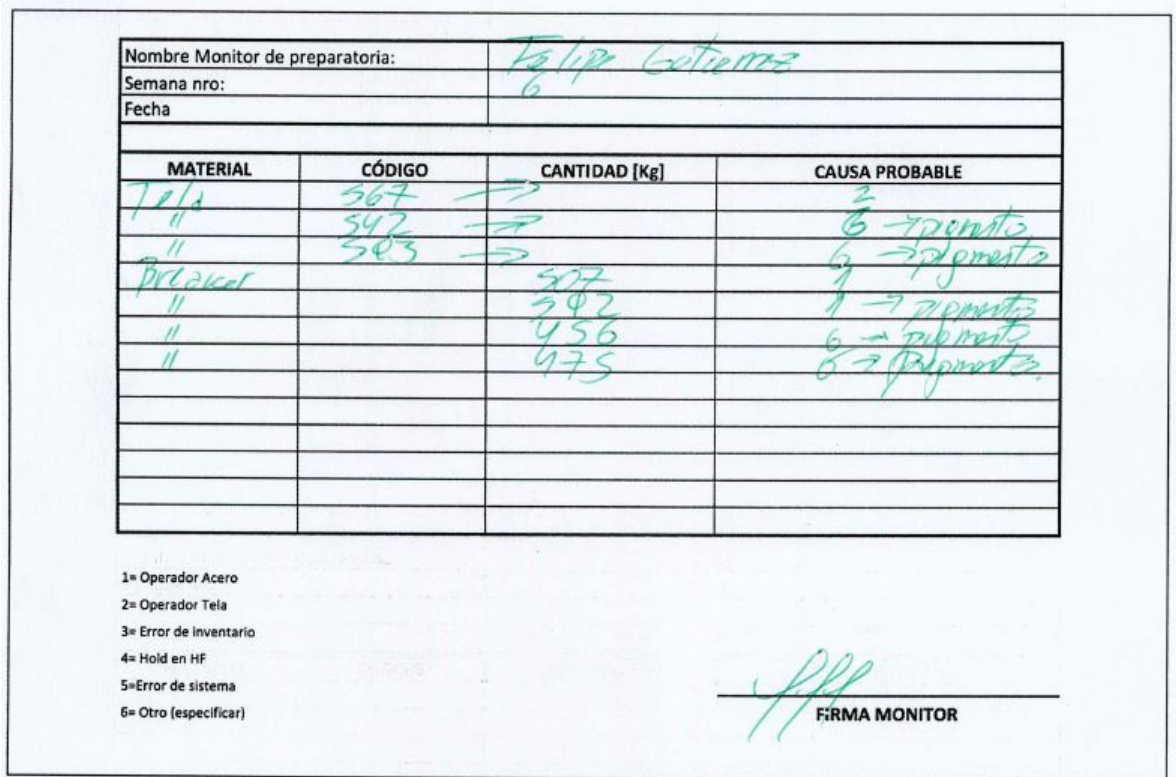 Nombre Monitor de preparatoria: Felipe Gutierrez
Semana nro: 6
Fecha
MATERIAL CÓDIGO CANTIDAD [Kg] CAUSA PROBABLE
Tela 567 → 2
" 542 → 6 → pigmento
" 593 → 6 → pigmento
Breaker 507 1
" 592 1 → pigmento
" 456 6 → pigmento
" 475 6 → pigmento.
1= Operador Acero
2= Operador Tela
3= Error de inventario
4= Hold en HF
5=Error de sistema
6= Otro (especificar)
FIRMA MONITOR